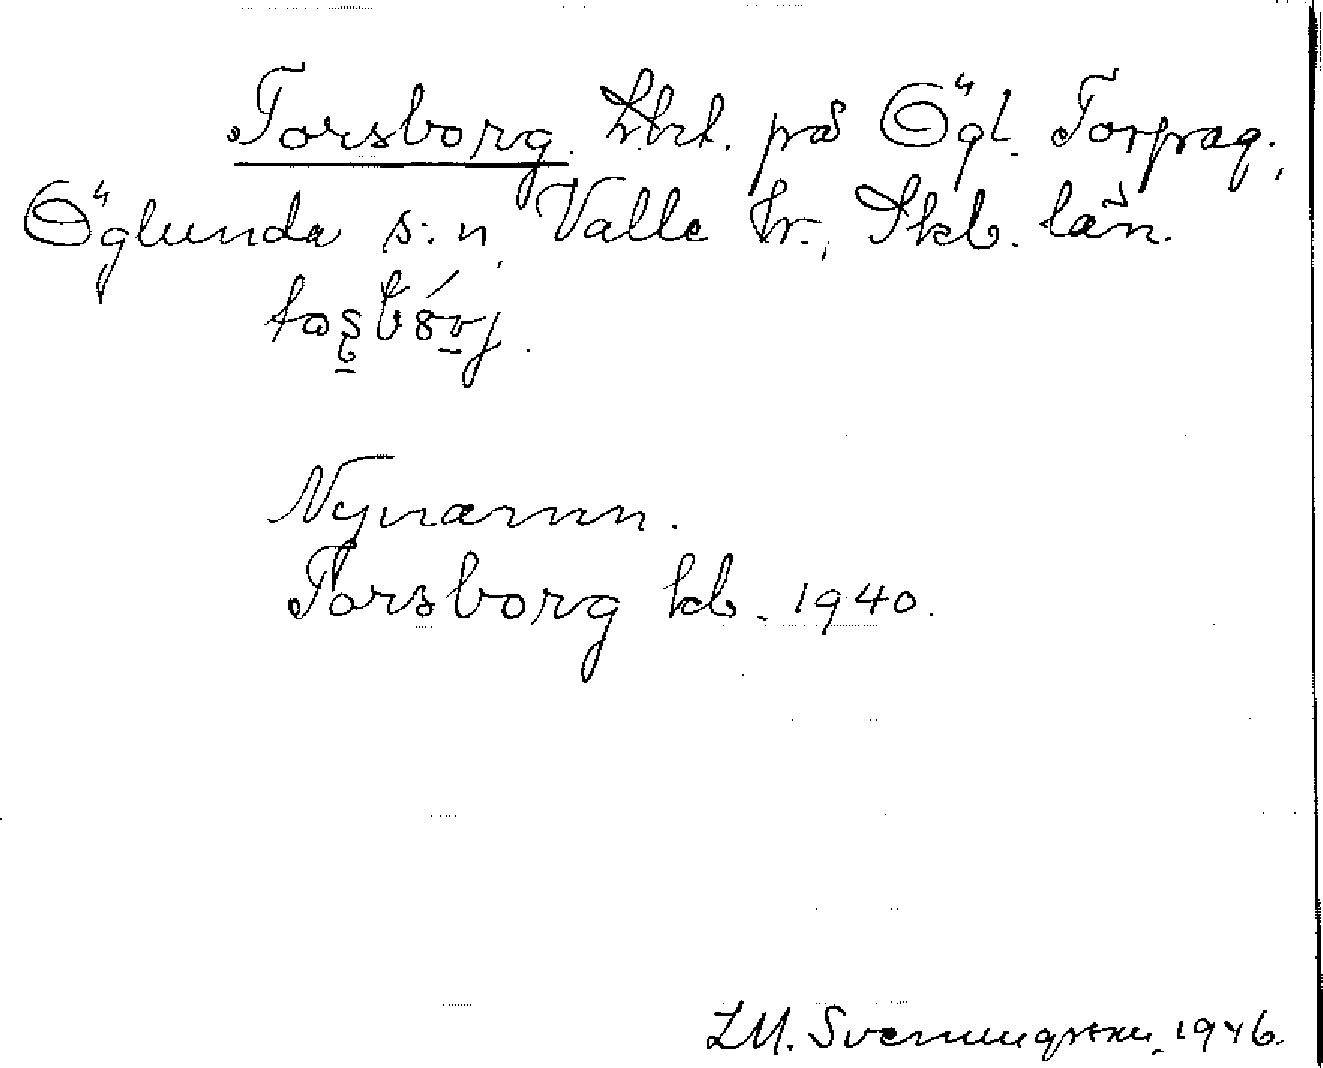 Torsborg. på Ögl. Torpag.,
Öglunda s:n, Valle hr., Skb. län.
Nynamn.
Torsborg kb. 1940.
LM. Svenungsson, 1946.